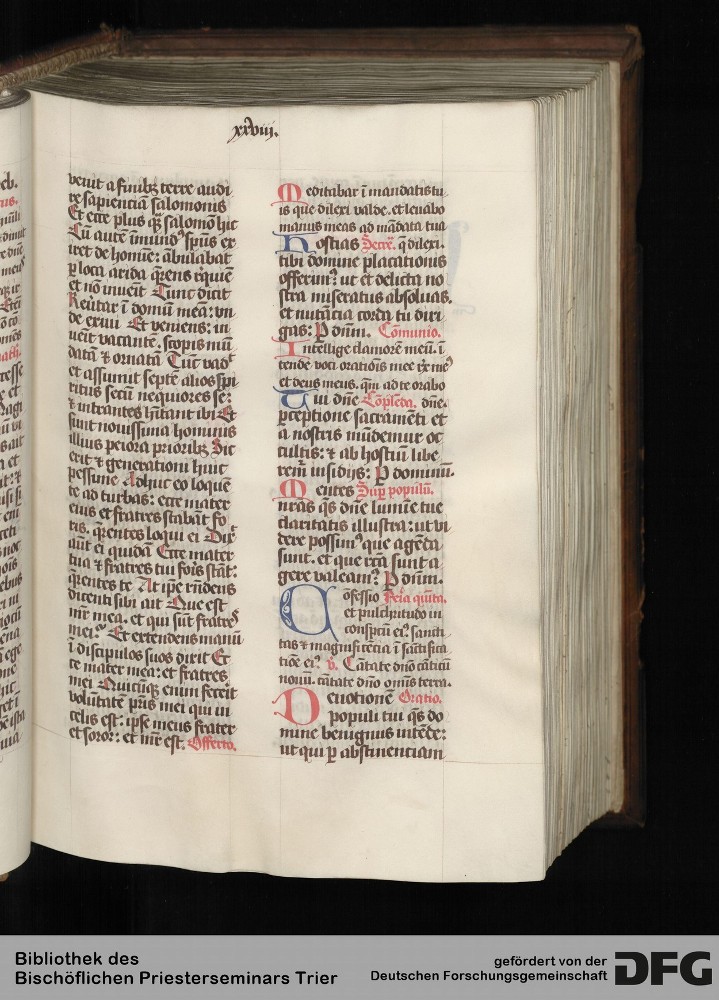 xxviii.
venit a finibꝫ terre audi
re sapienciā salomonis
Et ecce plus qͣꝫ salomō hic
Cū autē īmundꝰ spūs ex
ierit de homīe: ābulabat
ꝑ loca arida q̄rens rq̇uiem
et nō inuēit Tunc dicit
Reūtar ī domū meā: vn
de exiui Et veniens: in
ueīt vacantē. scopis mū
datā ⁊ ornatā Tūc vadᵗ
et assumit septē alios spi
ritus secū nequiores se:
⁊ intrantes hītant ibi Et
fiunt nouissima hominis
illius peiora priorībꝫ Sic
erit ⁊ generationi huic
pessime Adhuc eo loquē
te ad turbas: ecce mater
eius et fratres stabāt fo
ris. q̄rentes loqui ei Dixᵗ
aūt ei quidā Ecce mater
tua ⁊ fratres tui foris stāt:
q̄rentes te At ip̄e rn̄dens
dicenti sibi ait Que est
mr̄ mea. et qui sūt fratres
mei? Et extendens manū
ī discipulos suos dixit Et
ce mater mea: et fratres
mei Quicūqꝫ enim fecerit
volūtatē pr̄is mei qui in
celis est: ipse meus frater
et soror: et mr̄ est. Offerto.
Meditabar ī mandatis tu
is que dilexi valde. et leuabo
manus meas ad mādata tua
Hostias Secre. q̄ dilexi.
tibi domine placationis
offerimꝰ ut et delicta no
stra miseratus absoluas.
et nutācia corda tu diri
gas: P dn̄m. Cōmunio.
Intellige clamorē meū. ī
tende voci orationis mee rex meꝰ
et deus meus. qm̄ ad te orabo
Tui dn̄e Cōpleda. dn̄e.
ꝑceptione sacramēti et
a nostris mūdemur oc
cultis: ⁊ ab hostiū libe
remꝰ insidijs: P dominū.
Mentes Suꝑ populū.
nr̄as q̄s dn̄e lumīe tue
claritatis illustra: ut vi
dere possimꝰ que agēda
sunt. et que rc̄a sunt a
gere valeamꝰ P dn̄m.
Cōfessio Feria quīta.
et pulchritudo in
conspectu eiꝰ: sancti
tas ⁊ magnificēcia ī sāctifica
tiōe eiꝰ. v̄. Cātate dn̄o cāticū
nouū. cātate dn̄o omīs terra.
Deuotionē Oratio.
populi tui q̄s do
mine benignus intēde:
ut qui ꝑ abstinenciam
Bibliothek des
Bischöflichen Priesterseminars Trier
gefördert von der
Deutschen Forschungsgemeinschaft
DFG